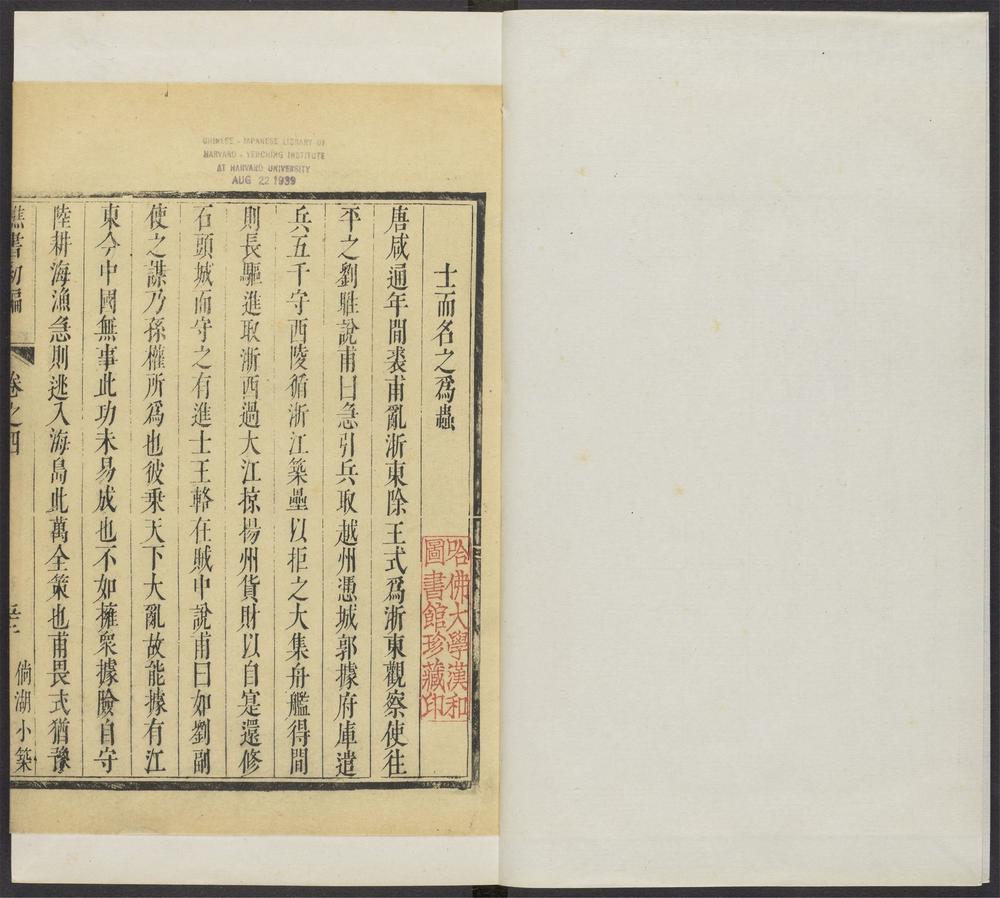 CHINESE - JAPANESE LIBRARY OF
HARVARD - YENCHING INSTITUTE
AT HARVARD UNIVERSITY
AUG 22 1939
士而名之爲蟲
哈佛大學漢和
圖書館珍藏印
唐咸通年間裘甫亂浙東除王式爲浙東觀察使往
平之劉暀說甫曰急引兵取越州憑城郭據府庫遣
兵五千守西陵循浙江築壘以拒之大集舟艦得間
則長驅進取浙西過大江掠揚州貨財以自寔還修
石頭城而守之有進士王輅在賊中說甫曰如劉副
使之謀乃孫權所爲也彼乗天下大亂故能據有江
東今中國無事此功未易成也不如擁衆據險自守
陸耕海漁急則逃入海島此萬全策也甫畏式猶豫
樵書初編
卷之四
倘湖小築